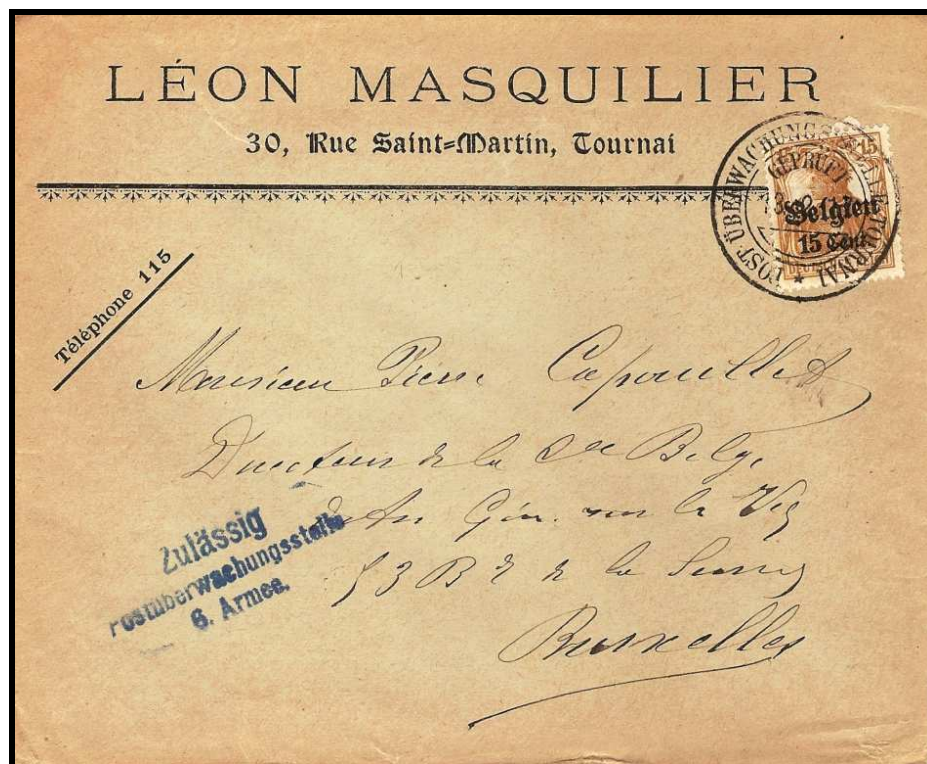 LÉON MASQUILIER
30, Rue Saint-Martin, Tournai
POST ÜBERWACHUNGS TOURNAI
GEPRÜFT
15
Belgien
15 Cent.
Téléphone 115
Monsieur Pierre Capouillet
Directeur de la Cie Belge
Gén. sur la Vie
53 Bd de la Senne
Bruxelles
Zulässig
Postüberwachungsstelle
6. Armee.